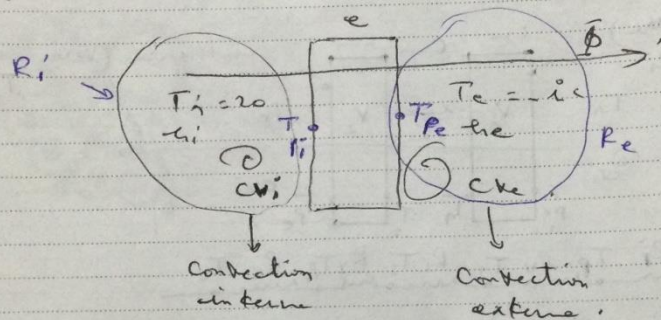 e
Φ
Ri
Ti = 20
Te =
hi
TPi
TPe
he
Re
cvi
cve
Convection
interne
Convection
externe.